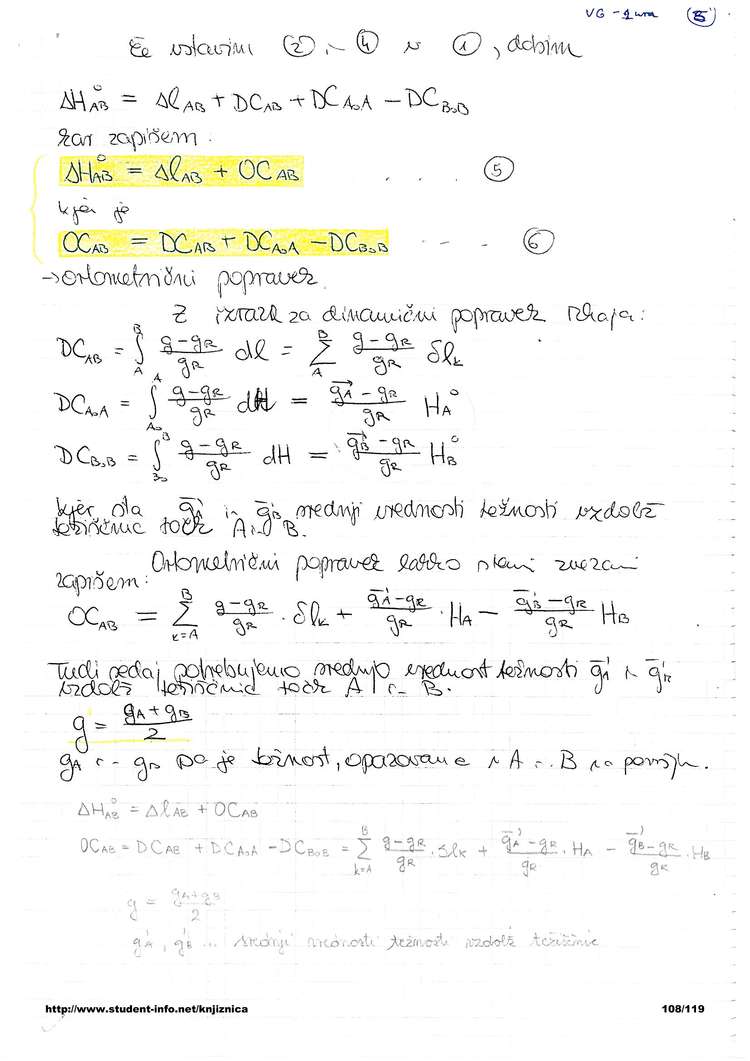 VG - 2 ura (5)
Če vstavim (2) in (4) v (1), dobim
ΔH°AB = ΔlAB + DCAB + DCA₀A − DCB₀B
kar zapišem.
ΔH°AB = ΔlAB + OCAB . . . . (5)
kjer je
OCAB = DCAB + DCA₀A − DCB₀B . - - . (6)
→ ortometrični popravek.
Z izrazu za dinamični popravek izhaja:
DCAB = ∫_A^B (g−gR)/gR dl = Σ_A^B (g−gR)/gR δlk
DCA₀A = ∫_A₀^A (g−gR)/gR dH = (ḡ'A−gR)/gR H°A
DCB₀B = ∫_B₀^B (g−gR)/gR dH = (ḡ'B−gR)/gR H°B
kjer sta ḡ'A in ḡ'B srednji vrednosti težnosti vzdolž
težiščnic točk A in B.
Ortometrični popravek lahko zvezani
zapišem:
OCAB = Σ_{k=A}^B (g−gR)/gR · δlk + (ḡ'A−gR)/gR · HA − (ḡ'B−gR)/gR HB
Tudi sedaj potrebujemo srednjo vrednost težnosti ḡ'A in ḡ'B
vzdolž težiščnic točk A in B.
g = (gA + gB)/2
gA in gB pa je težnost, opazovana v A in B na površju.
ΔH°AB = ΔlAB + OCAB
OCAB = DCAB + DCA₀A − DCB₀B = Σ_{k=A}^B (g−gR)/gR · δlk + (ḡ'A−gR)/gR · HA − (ḡ'B−gR)/gR · HB
g = (gA+gB)/2
g'A, g'B ... srednji vrednosti težnosti vzdolž težiščnic
http://www.student-info.net/knjiznica 108/119